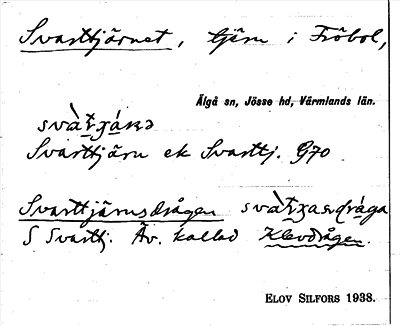 Svarttjärnet, tjärn i Fröbol,
Älgå sn, Jösse hd, Värmlands län.
Svarttjärn ek Svarttj. G70
Svarttjärnsdrågen
S Svarttj. Äv. kallad Klevdrågen.
ELOV SILFORS 1938.